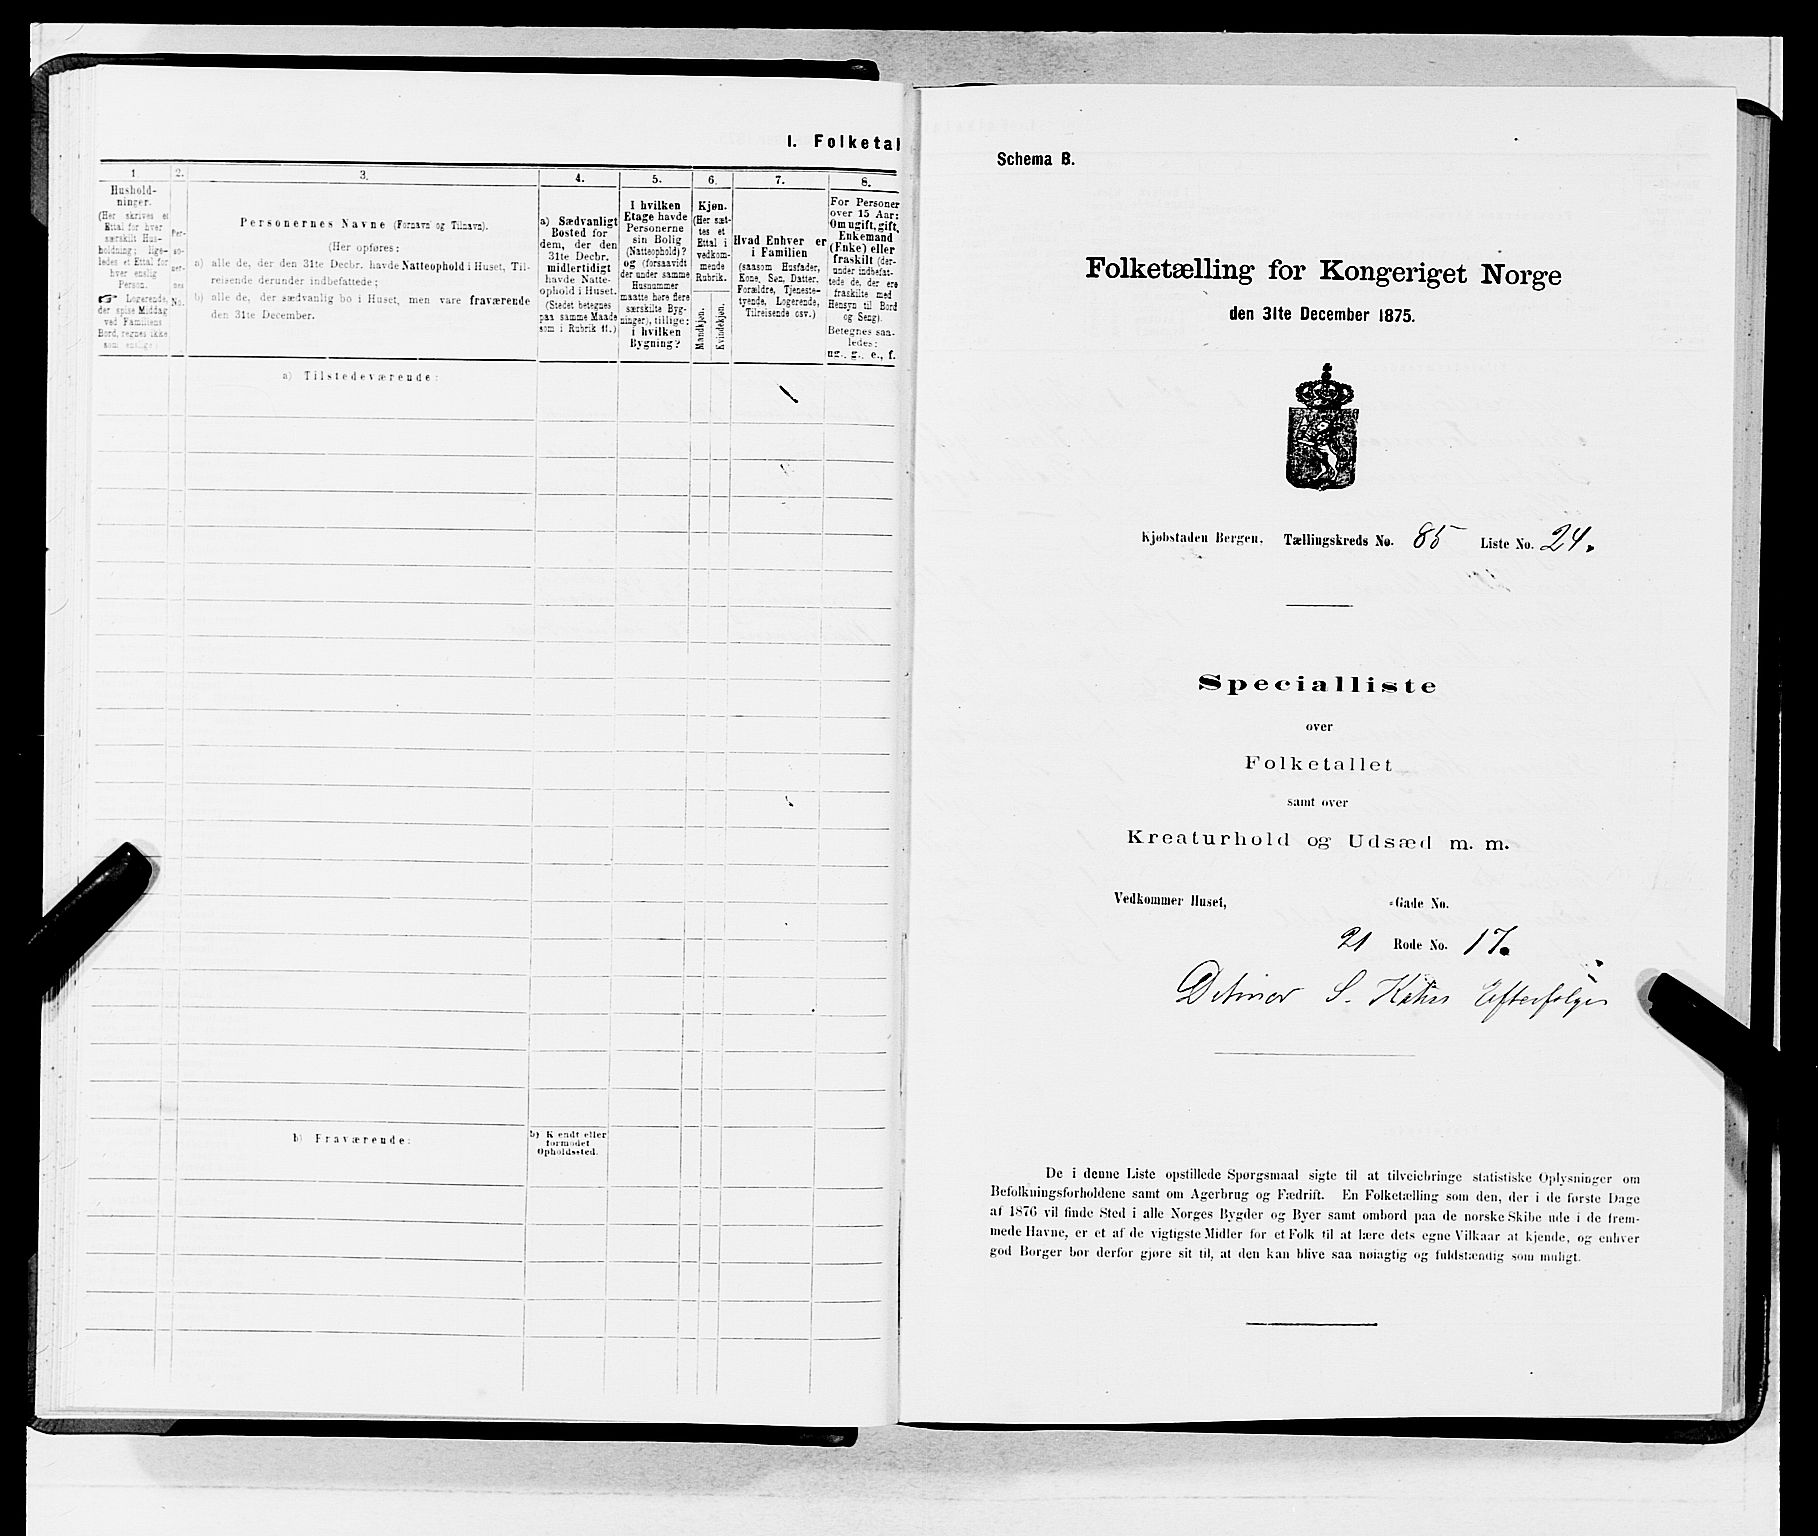 I. Folketal
1
Hushold-
ninger.
(Her skrives et
Ettal for hver
særskilt Hus-
holdning; lige-
ledes et Ettal for
hver enslig
Person.
☞ Logerende,
der spise Middag
ved Familiens
Bord, regnes ikke
som enslige.)
2.
Per-
so-
ner-
nes
No.
3.
Personernes Navne (Fornavn og Tilnavn).
(Her opføres:
a) alle de, der den 31te Decbr. havde Natteophold i Huset, Til-
reisende derunder indbefattede;
b) alle de, der sædvanlig bo i Huset, men vare fraværende
den 31te December.
4.
a) Sædvanligt
Bosted for
dem, der den
31te Decbr.
midlertidigt
havde Natte-
ophold i Huset.
(Stedet betegnes
paa samme Maade
som i Rubrik 11.)
5.
I hvilken
Etage havde
Personerne
sin Bolig
(Natteophold)?
og (forsaavidt
der under samme
Husnummer
maatte høre flere
særskilte Byg-
ninger), tillige:
i hvilken
Bygning?
6.
Kjøn.
(Her sæt-
tes et
Ettal i
vedkom-
mende
Rubrik.
Mandkjøn.
Kvindekjøn.
7.
Hvad Enhver er
i Familien
(saasom Husfader,
Kone, Søn, Datter,
Forældre, Tjeneste-
tyende, Logerende,
Tilreisende osv.)
8.
For Personer
over 15 Aar:
Om ugift, gift,
Enkemand
(Enke) eller
fraskilt (der-
under indbefat-
tede de, der ere
fraskilte med
Hensyn til Bord
og Seng).
Betegnes saa-
ledes:
ug., g., e., f.
a) Tilstedeværende:
b) Fraværende:
b) Kjendt eller
formodet
Opholdssted.
Schema B.
Folketælling for Kongeriget Norge
den 31te December 1875.
Kjøbstaden Bergen. Tællingskreds No. 85 Liste No. 24.
Specialliste
over
Folketallet
samt over
Kreaturhold og Udsæd m. m.
Vedkommer Huset, -Gade No.
21 Rode No. 17.
Detmar S. Kahrs Efterfølger
De i denne Liste opstillede Spørgsmaal sigte til at tilveiebringe statistiske Oplysninger om
Befolkningsforholdene samt om Agerbrug og Fædrift. En Folketælling som den, der i de første Dage
af 1876 vil finde Sted i alle Norges Bygder og Byer samt ombord paa de norske Skibe ude i de frem-
mede Havne, er et af de vigtigste Midler for et Folk til at lære dets egne Vilkaar at kjende, og enhver
god Borger bør derfor gjøre sit til, at den kan blive saa nøiagtig og fuldstændig som muligt.